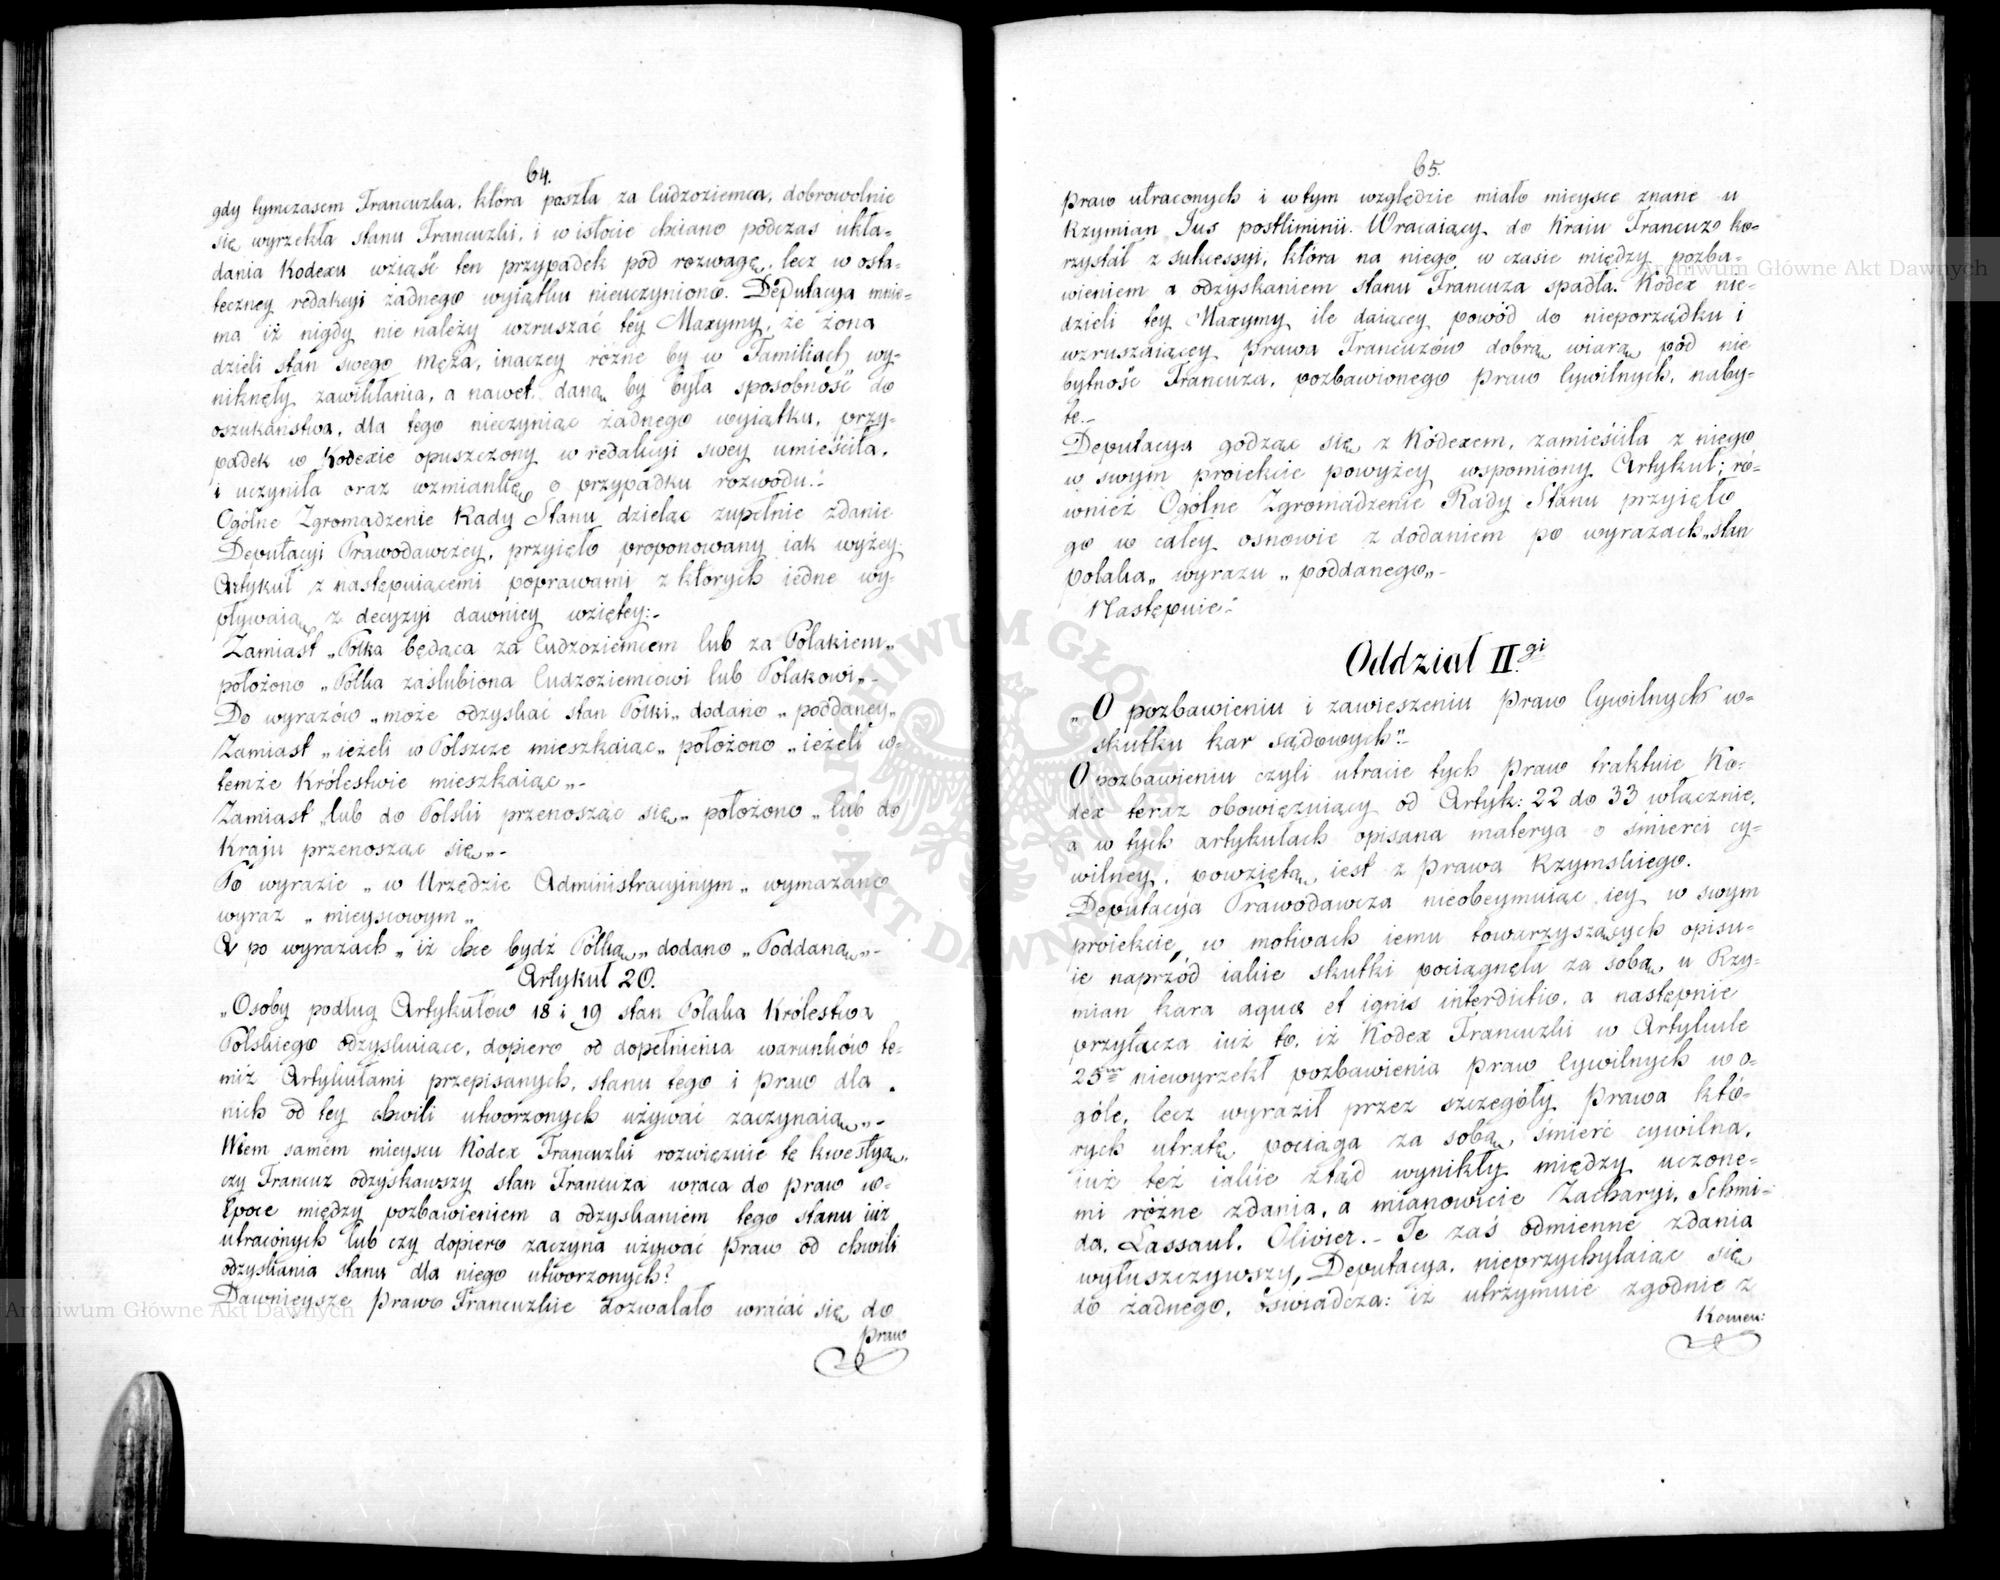 64.
gdy tymczasem Francuzka, która poszła za Cudzoziemca, dobrowolnie
się wyrzekła stanu Francuzki, i w istocie chciano podczas ukła-
dania Kodexu wziąść ten przypadek pod rozwagę, lecz w osta-
teczney redakcyi żadnego wyiątku nieuczyniono. Deputacya mnie-
ma iż nigdy nie należy wzruszać tey Maxymy, że żona
dzieli stan swego Męża, inaczey różne by w Familiach wy-
niknęły zawikłania, a nawet daną by była sposobność do
oszukaństwa, dla tego nieczyniąc żadnego wyiątku, przy-
padek w Kodexie opuszczony w redakcyi swey umieściła,
i uczyniła oraz wzmiankę o przypadku rozwodu.-
Ogólne Zgromadzenie Rady Stanu dzieląc zupełnie zdanie
Deputacyi Prawodawczey, przyięło proponowany iak wyżey
Artykuł z następuiącemi poprawami z których iedne wy-
pływaią z decyzyi dawniey wziętey:-
Zamiast „Polka będąca za Cudzoziemcem lub za Polakiem„
położono „Polka zaślubiona Cudzoziemcowi lub Polakowi„-
Do wyrazów „może odzyskać stan Polki„ dodano „poddaney„
Zamiast „ieżeli w Polszcze mieszkaiąc„ położono „ieżeli w-
temże Królestwie mieszkaiąc„-
Zamiast „lub do Polski przenosząc się„ położono „lub do
Kraju przenosząc się„-
Po wyrazie „w Urzędzie Administracyinym„ wymazano
wyraz „mieyscowym„
A po wyrazach „iż chce bydź Polką„ dodano „Poddaną„-
Artykuł 20.
„Osoby podług Artykułów 18 i 19 stan Polaka Królestwa
Polskiego odzyskuiące, dopiero od dopełnienia warunków te-
miż Artykułami przepisanych, stanu tego i praw dla
nich od tey chwili utworzonych używać zaczynaią„-
Wtem samem mieyscu Kodex Francuzki rozwięzuie tę kwestyą,
czy Francuz odzyskawszy stan Francuza wraca do praw w-
Epoce między pozbawieniem a odzyskaniem tego stanu iuż
utraconych lub czy dopiero zaczyna używać praw od chwili
odzyskania stanu dla niego utworzonych?
Dawnieysze prawo Francuzkie dozwalało wracać się do
praw
65.
praw utraconych i w tym względzie miało mieysce znane u
Rzymian Jus postliminii. Wracaiący do Kraiu Francuz ko-
rzystał z sukcessyi, która na niego w czasie między pozba-
wieniem a odzyskaniem stanu Francuza spadła. Kodex nie-
dzieli tey Maxymy ile daiącey powód do nieporządku i
wzruszaiącey prawa Francuzów dobrą wiarą pod nie
bytność Francuza, pozbawionego praw Cywilnych, naby-
te.-
Deputacya godząc się z Kodexem, zamieściła z niego
w swym proiekcie powyżey wspomiony Artykuł; ró-
wnież Ogólne Zgromadzenie Rady Stanu przyięło
go w całey osnowie z dodaniem po wyrazach „stan
polaka„ wyrazu „poddanego„-
Następuie:
Oddział II.gi
„O pozbawieniu i zawieszeniu praw Cywilnych w-
skutku kar sądowych”-
O pozbawieniu czyli utracie tych praw traktuie Ko-
dex teraz obowięzuiący od Artyk: 22 do 33 włącznie,
a w tych artykułach opisana materya o śmierci cy-
wilney, powziętą iest z prawa Rzymskiego.
Deputacya Prawodawcza nieobeymuiąc iey w swym
proiekcie, w motivach iemu towarzyszących opisu-
ie naprzód iakie skutki pociągnęła za sobą u Rzy-
mian kara aquæ et ignis interdictio, a następnie
przyłącza iuż to, iż Kodex Francuzki w Artykule
25m niewyrzekł pozbawienia praw Cywilnych w o-
góle, lecz wyraził przez szczegóły prawa któ-
rych utratę pociąga za sobą śmierć cywilna,
iuż też iakie ztąd wynikły między uczone-
mi różne zdania, a mianowicie Zacharyi, Schmi-
da, Lassaul, Olivier.- Te zaś odmienne zdania
wyłuszczywszy, Deputacya, nieprzychylaiąc się
do żadnego, oświadcza: iż utrzymuie zgodnie z
Komen:
ARCHIWUM GŁÓWNE AKT DAWNYCH
Archiwum Główne Akt Dawnych
Archiwum Główne Akt Dawnych